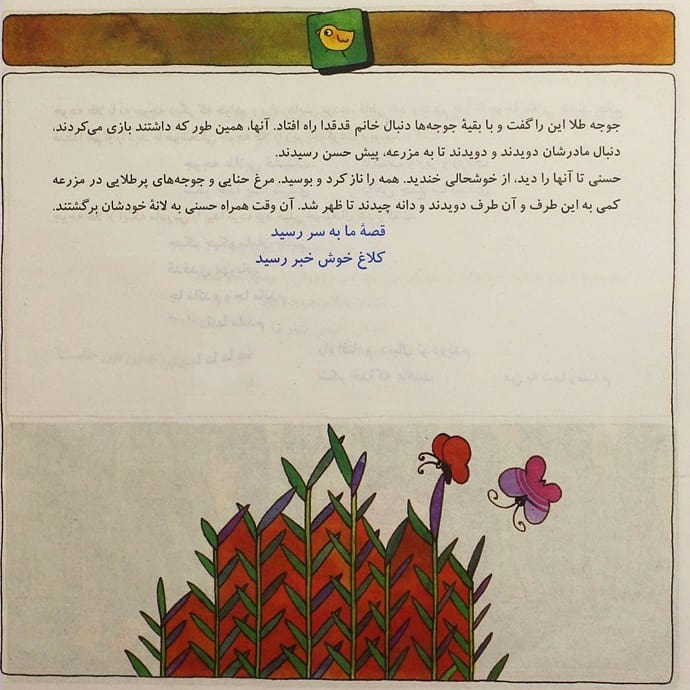 جوجه طلا این را گفت و با بقیهٔ جوجه‌ها دنبال خانم قدقدا راه افتاد. آنها، همین طور که داشتند بازی می‌کردند،
دنبال مادرشان دویدند و دویدند تا به مزرعه، پیش حسن رسیدند.
حسنی تا آنها را دید، از خوشحالی خندید. همه را ناز کرد و بوسید. مرغ حنایی و جوجه‌های پرطلایی در مزرعه
کمی به این طرف و آن طرف دویدند و دانه چیدند تا ظهر شد. آن وقت همراه حسنی به لانهٔ خودشان برگشتند.
قصهٔ ما به سر رسید
کلاغ خوش خبر رسید